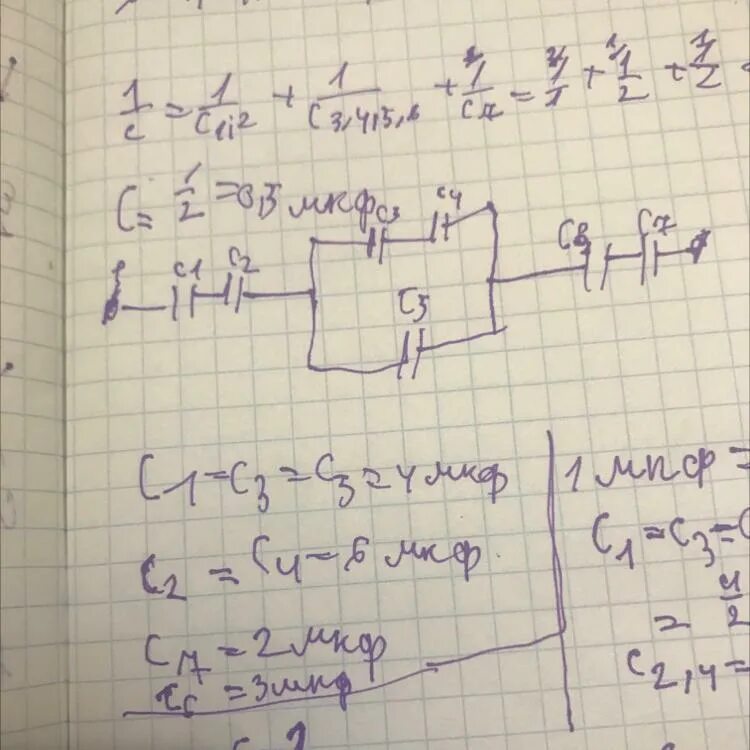 1/c = 1/C1,2 + 1/C3,4,5,6 + 1/C7 = 1/1 + 1/2 + 1/2 =
C = 1/2 = 0,5 мкф
C3 C4
C1 C2
C6 C7
C5
C1 = C3 = C3 = 4 мкф
C2 = C4 = 6 мкф.
C7 = 2 мкф
= 3 мкф
1 мкф =
C1 = C3 =
= 4/2
C2,4 =